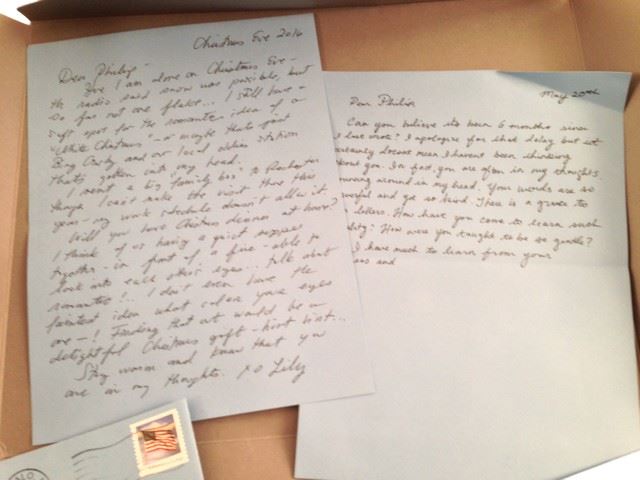 Christmas Eve 2016
Dear Philip -
Here I am alone on Christmas Eve -
the radio said snow was possible, but
so far not one flake... I still have a
soft spot for the romantic idea of a
"White Christmas" - or maybe that's just
Bing Crosby and our local oldies station
that's gotten into my head.
I sent a big "family box" to Rochester
though I can't make the visit there this
year - my work schedule doesn't allow it.
Will you have Christmas dinner at home?
I think of us having a quiet
together - in front of a fire - able to
look into each other's eyes... talk about
romantic!.. I don't even have the
faintest idea what color your eyes
are - ! Finding that out would be a
delightful Christmas gift - hint hint...
Stay warm and know that you
are in my thoughts. xo Lily
May 20th
Dear Philip
Can you believe it's been 6 months since
I last wrote? I apologize for that delay but it
doesn't mean I haven't been thinking
about you. In fact, you are often in my thoughts
around in my head. Your words are so
and yet so kind. There is a grace to
letters. How have you come to learn such
How were you taught to be so gentle?
I have much to learn from your
and